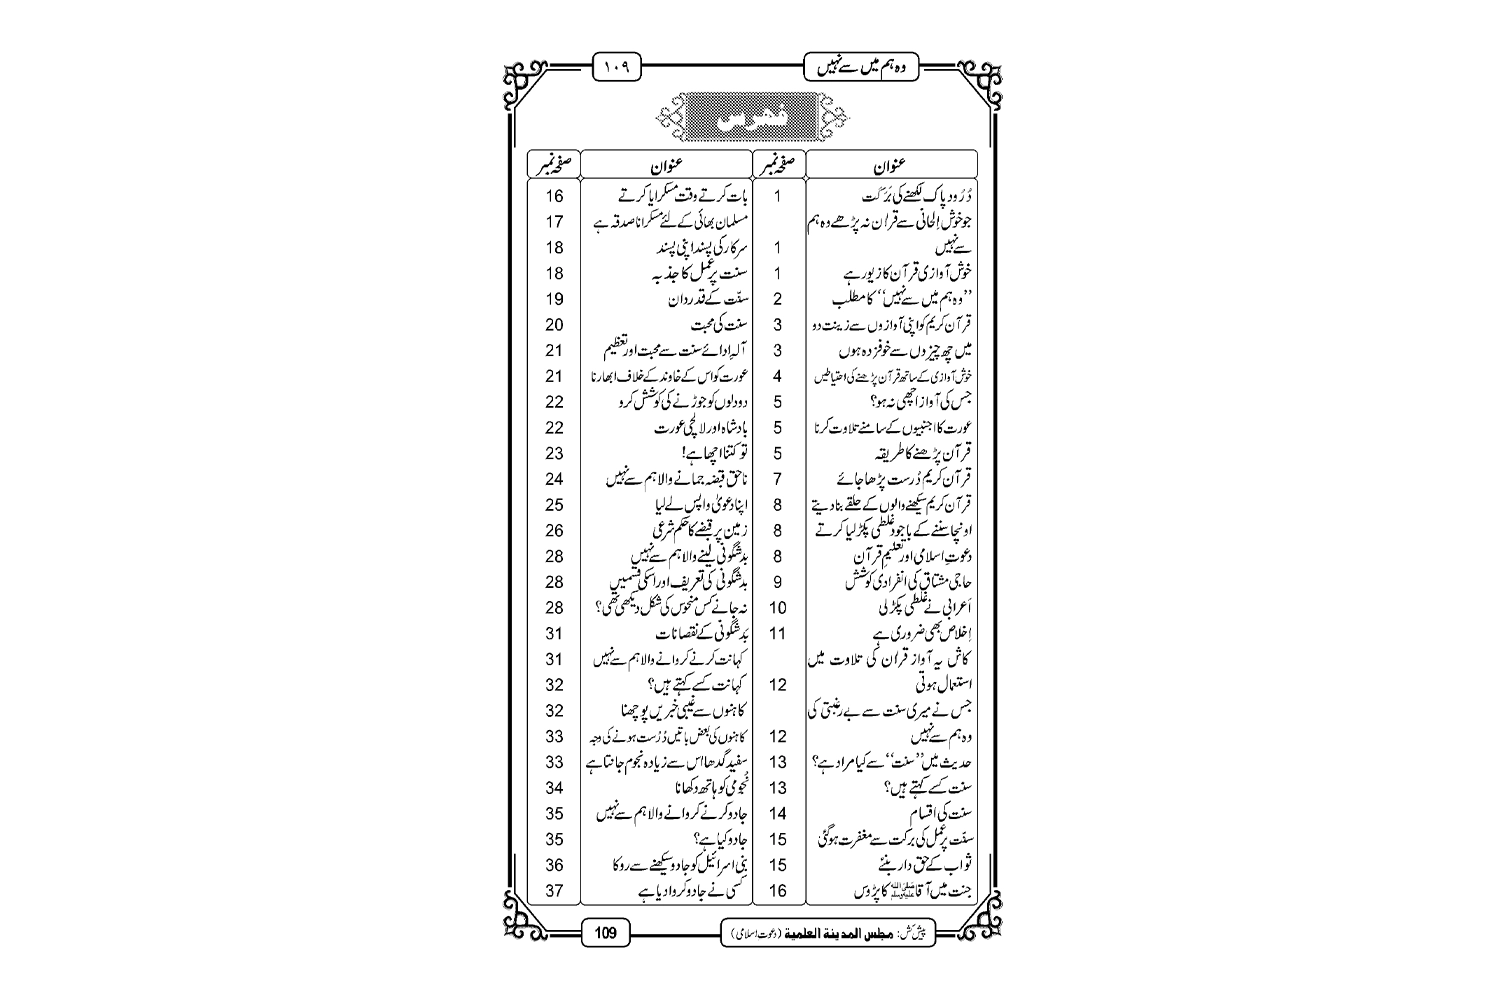 وہ ہم میں سے نہیں
١٠٩
فہرس
عنوان صفحہ نمبر
دُرُود پاک لکھنے کی بَرَکت 1
جو خوش اِلحانی سے قراٰن نہ پڑھے وہ ہم
سے نہیں 1
خوش آوازی قرآن کا زیور ہے 1
’’وہ ہم میں سے نہیں‘‘ کا مطلب 2
قرآن کریم کو اپنی آوازوں سے زینت دو 3
میں چھ چیزوں سے خوفزدہ ہوں 3
خوش آوازی کے ساتھ قرآن پڑھنے کی احتیاطیں 4
جس کی آواز اچھی نہ ہو؟ 5
عورت کا اجنبیوں کے سامنے تلاوت کرنا 5
قرآن پڑھنے کا طریقہ 5
قرآن کریم دُرست پڑھا جائے 7
قرآن کریم سیکھنے والوں کے حلقے بنا دیتے 8
اونچا سننے کے باجود غلطی پکڑ لیا کرتے 8
دعوتِ اسلامی اور تعلیمِ قرآن 8
حاجی مشتاق کی انفرادی کوشش 9
اَعرابی نے غلطی پکڑ لی 10
اِخلاص بھی ضروری ہے 11
کاش یہ آواز قراٰن کی تلاوت میں
استعمال ہوتی 12
جس نے میری سنت سے بے رغبتی کی
وہ ہم سے نہیں 12
حدیث میں ’’سنت‘‘ سے کیا مراد ہے؟ 13
سنت کسے کہتے ہیں؟ 13
سنت کی اقسام 14
سنّت پر عمل کی برکت سے مغفرت ہو گئی 15
ثواب کے حق دار بنئے 15
جنت میں آقا صلی اللہ علیہ وسلم کا پڑوس 16
عنوان صفحہ نمبر
بات کرتے وقت مسکرایا کرتے 16
مسلمان بھائی کے لئے مسکرانا صدقہ ہے 17
سرکار کی پسند اپنی پسند 18
سنت پر عمل کا جذبہ 18
سنّت کے قدردان 19
سنت کی محبت 20
آلۂ ادائے سنت سے محبت اور تعظیم 21
عورت کو اس کے خاوند کے خلاف ابھارنا 21
دو دلوں کو جوڑنے کی کوشش کرو 22
بادشاہ اور لالچی عورت 22
تو کتنا اچھا ہے! 23
ناحق قبضہ جمانے والا ہم سے نہیں 24
اپنا دعویٰ واپس لے لیا 25
زمین پر قبضے کا حکم شرعی 26
بدشگونی لینے والا ہم سے نہیں 28
بدشگونی کی تعریف اور اسکی قسمیں 28
نہ جانے کس منحوس کی شکل دیکھی تھی؟ 28
بَدشگونی کے نقصانات 31
کہانت کرنے کروانے والا ہم سے نہیں 31
کہانت کسے کہتے ہیں؟ 32
کاہنوں سے غیبی خبریں پوچھنا 32
کاہنوں کی بعض باتیں دُرُست ہونے کی وجہ 33
سفید گدھا اس سے زیادہ نجوم جانتا ہے 33
نُجومی کو ہاتھ دکھانا 34
جادو کرنے کروانے والا ہم سے نہیں 35
جادو کیا ہے؟ 35
بنی اسرائیل کو جادو سیکھنے سے روکا 36
کسی نے جادو کروا دیا ہے 37
پیش کش: مجلس المدینۃ العلمیۃ (دعوت اسلامی)
109